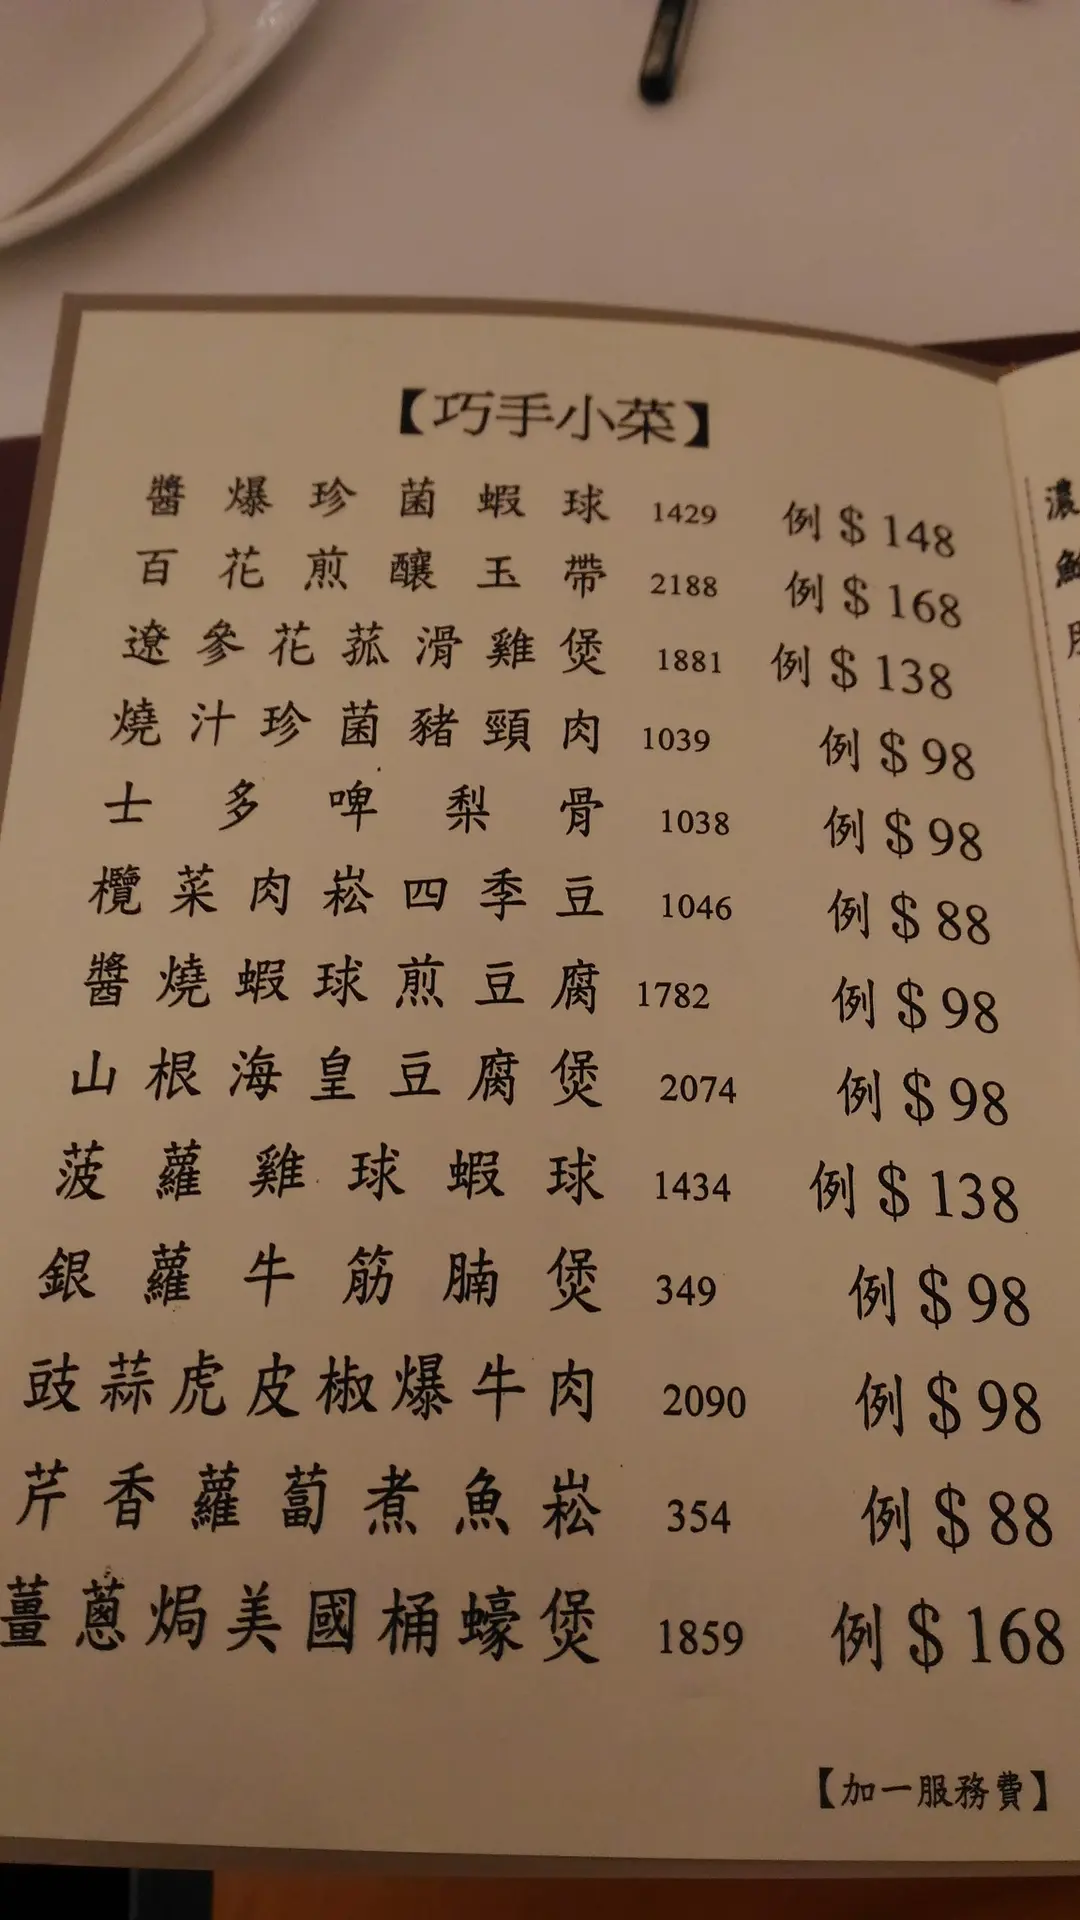 【巧手小菜】
醬爆珍菌蝦球 1429 例 $148
百花煎釀玉帶 2188 例 $168
遼參花菰滑雞煲 1881 例 $138
燒汁珍菌豬頸肉 1039 例 $98
士多啤梨骨 1038 例 $98
欖菜肉崧四季豆 1046 例 $88
醬燒蝦球煎豆腐 1782 例 $98
山根海皇豆腐煲 2074 例 $98
菠蘿雞球蝦球 1434 例 $138
銀蘿牛筋腩煲 349 例 $98
豉蒜虎皮椒爆牛肉 2090 例 $98
芹香蘿蔔煮魚崧 354 例 $88
薑蔥焗美國桶蠔煲 1859 例 $168
【加一服務費】
濃